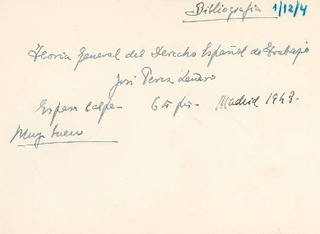 Bibliografia 1/12/4
Teoria General del Derecho Español de Trabajo
José Perez Leñero
Espasa Calpe - Madrid 1948.
Muy bueno